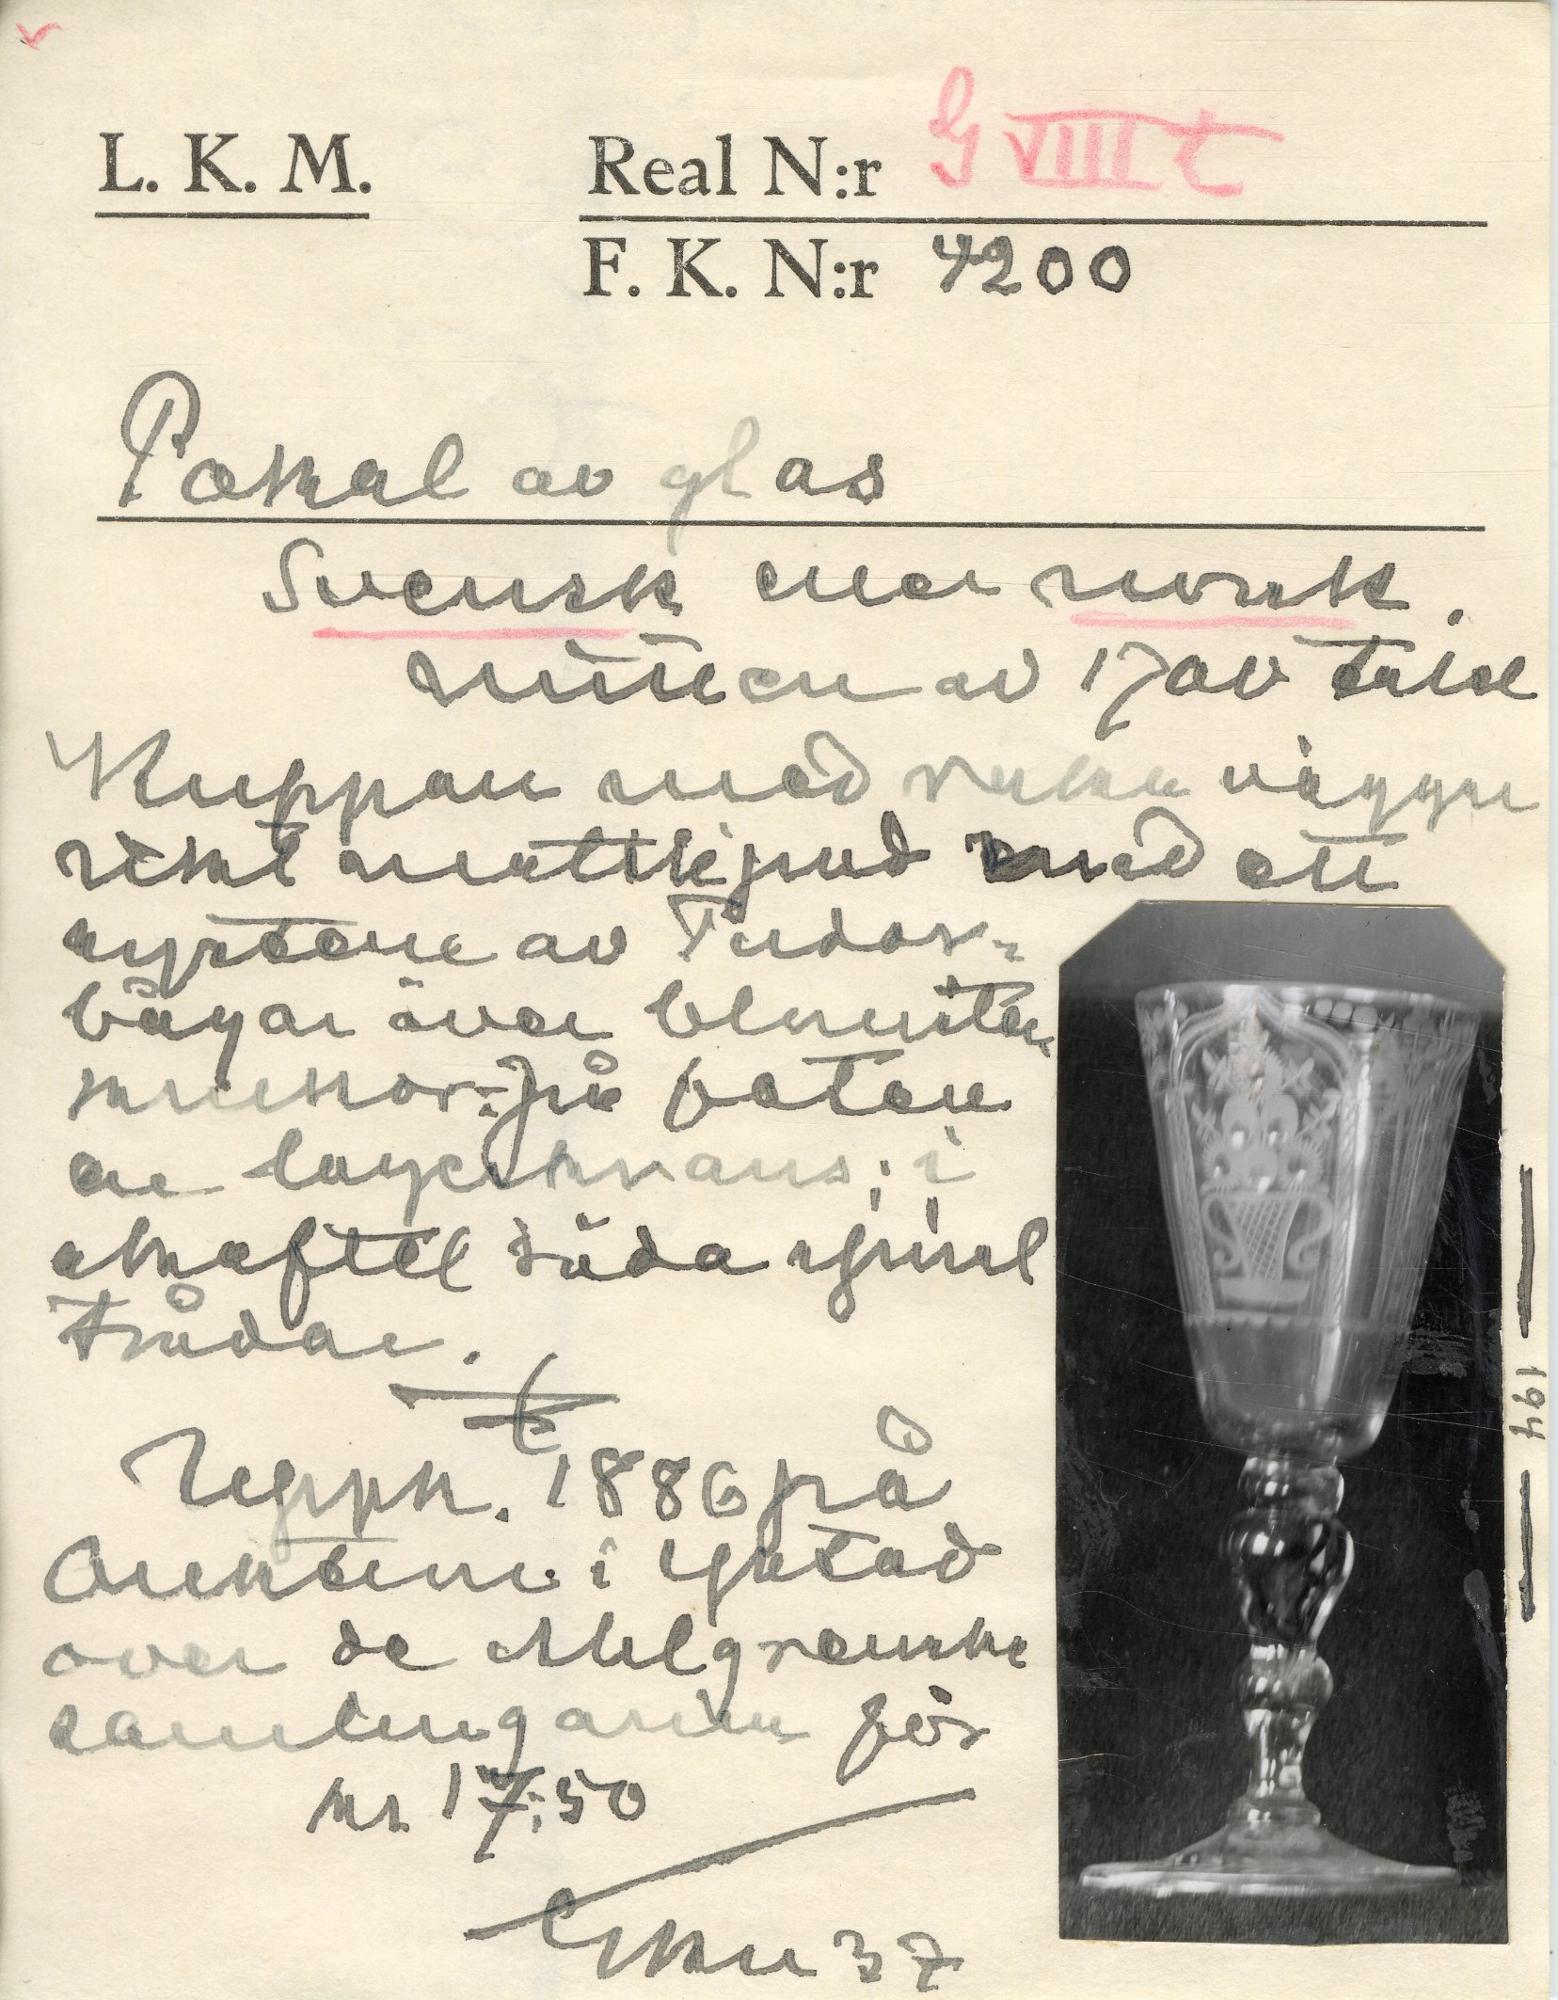 L. K. M.
Real N:r G VIII t
F. K. N:r 4200
Pokal av glas
Svensk eller norsk.
mitten av 170v talet
Kuppan med raka väggar
rikt mattslipad med ett
system av Tudor-
bågar över blomster
krukor. På foten
en lagerkrans; i
skaftet röda spiral
trådar.
Uppk. 1886 på
Auktion i Ystad
över de Ahlgrenska
samlingarna för
kr 17,50
37
194